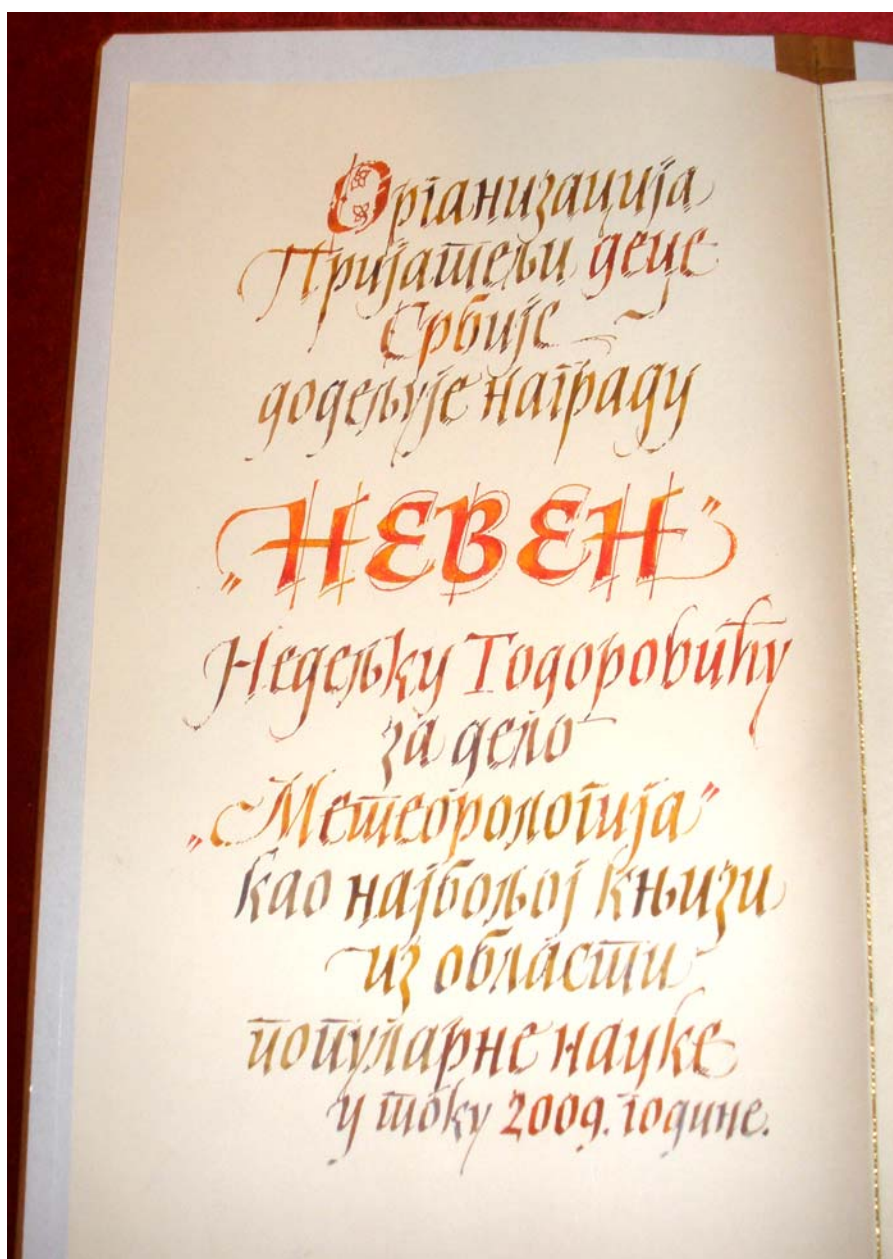 Организација
Пријатељи деце
Србије
додељује награду
„НЕВЕН”
Недељку Тодоровићу
за дело
„Метеорологија”
као најбољој књизи
из области
популарне науке
у току 2009. године.